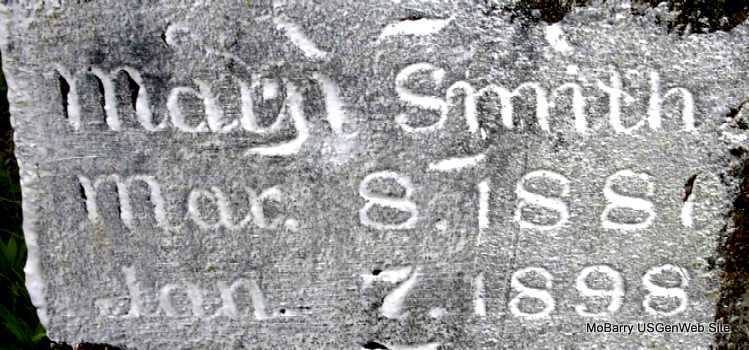 Mary Smith
Mar. 8. 1881
Jan. 7. 1898
MoBarry USGenWeb Site